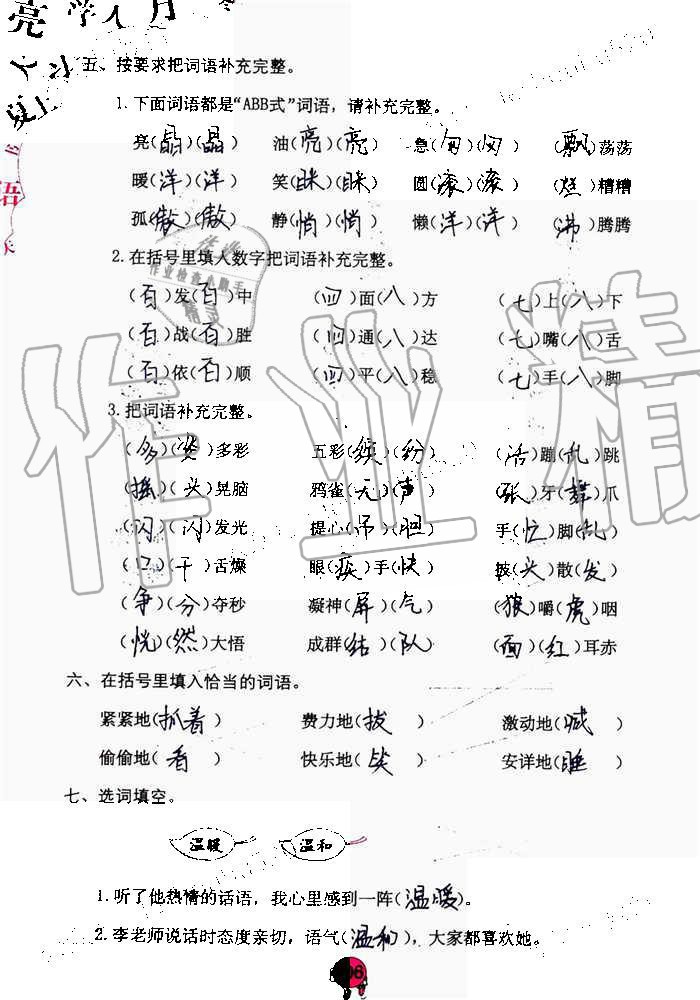 亮 学人 月
五、按要求把词语补充完整。
1.下面词语都是“ABB式”词语，请补充完整。
亮(晶)(晶) 油(亮)(亮) 急(匆)(匆) (飘)荡荡
暖(洋)(洋) 笑(眯)(眯) 圆(滚)(滚) (乱)糟糟
孤(傲)(傲) 静(悄)(悄) 懒(洋)(洋) (沸)腾腾
2.在括号里填人数字把词语补充完整。
(百)发(百)中 (四)面(八)方 (七)上(八)下
(百)战(百)胜 (四)通(八)达 (七)嘴(八)舌
(百)依(百)顺 (四)平(八)稳 (七)手(八)脚
3.把词语补充完整。
(多)(姿)多彩 五彩(缤)(纷) (活)蹦(乱)跳
(摇)(头)晃脑 鸦雀(无)(声) (张)牙(舞)爪
(闪)(闪)发光 提心(吊)(胆) 手(忙)脚(乱)
(口)(干)舌燥 眼(疾)手(快) 披(头)散(发)
(争)(分)夺秒 凝神(屏)(气) (狼)嚼(虎)咽
(恍)(然)大悟 成群(结)(队) (面)(红)耳赤
六、在括号里填入恰当的词语。
紧紧地(抓着) 费力地(拔) 激动地(喊)
偷偷地(看) 快乐地(笑) 安详地(睡)
七、选词填空。
温暖 温和
1.听了他热情的话语，我心里感到一阵(温暖)。
2.李老师说话时态度亲切，语气(温和)，大家都喜欢她。
作业精
作业
作业检查小助手
精灵
语